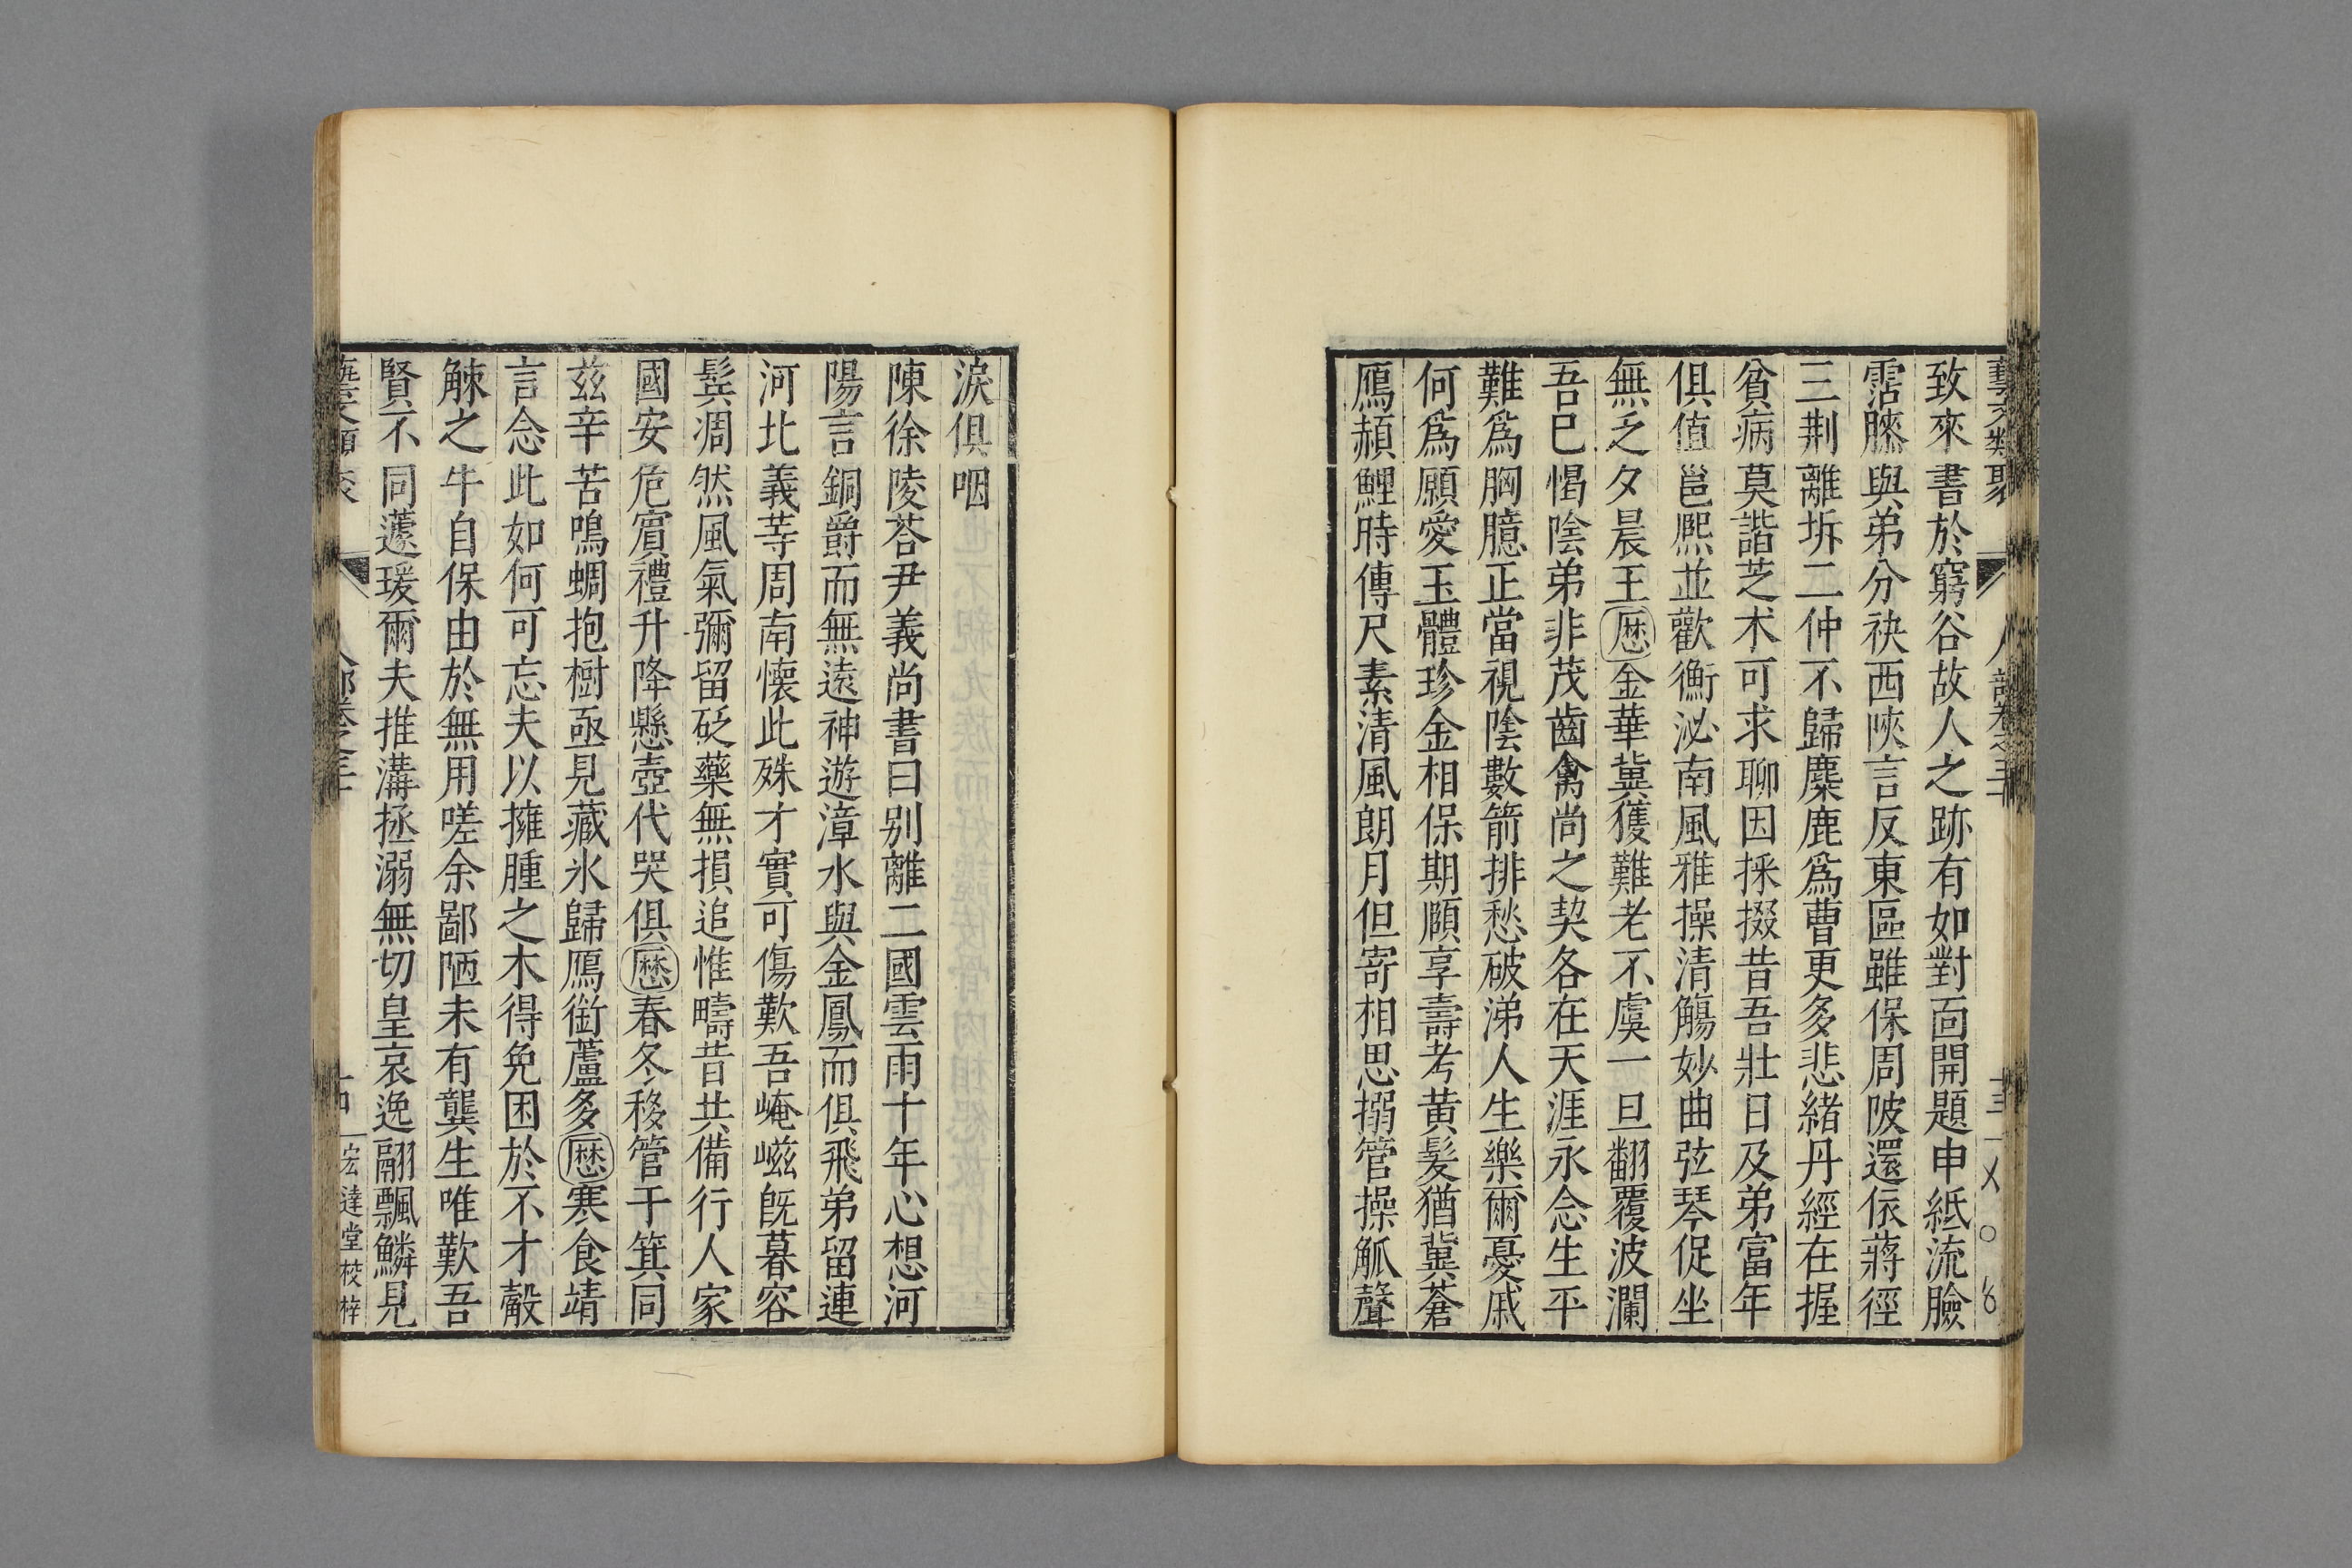 藝文類聚 人部卷之三十 十三
致來書於窮谷故人之跡有如對面開題申紙流臉
霑膝與弟分袂西陝言反東區雖保周陂還依蔣徑
三荆離坼二仲不歸麋鹿爲曹更多悲緒丹經在握
貧病莫諧芝朮可求聊因採掇昔吾壯日及弟富年
俱值邕熙並歡衡泌南風雅操清觴妙曲弦琴促坐
無乏夕晨玉厯金華冀獲難老不虞一旦翻覆波瀾
吾已愒陰弟非茂齒禽尚之契各在天涯永念生平
難爲胸臆正當視陰數箭排愁破涕人生樂爾憂戚
何爲願愛玉體珍金相保期頤享壽考黄髪猶冀蒼
鴈頳鯉時傳尺素清風朗月但寄相思搦管操觚聲
淚俱咽
陳徐陵荅尹義尚書曰别離二國雲雨十年心想河
陽言銅爵而無遠神遊漳水與金鳳而俱飛弟留連
河北義等周南懷此殊才實可傷歎吾崦嵫旣暮容
鬂凋然風氣彌留砭藥無損追惟疇昔共備行人家
國安危賔禮升降懸壺代哭俱厯春冬移管干箕同
玆辛苦鳴蜩抱樹亟見藏氷歸鴈銜蘆多厯寒食靖
言念此如何可忘夫以擁腫之木得免困於不才觳
觫之牛自保由於無用嗟余鄙陋未有龔生唯歎吾
賢不同蘧瑗爾夫推溝拯溺無切皇哀逸翮飄鱗見
藝文類聚 人部卷之三十 十四 宏達堂校梓